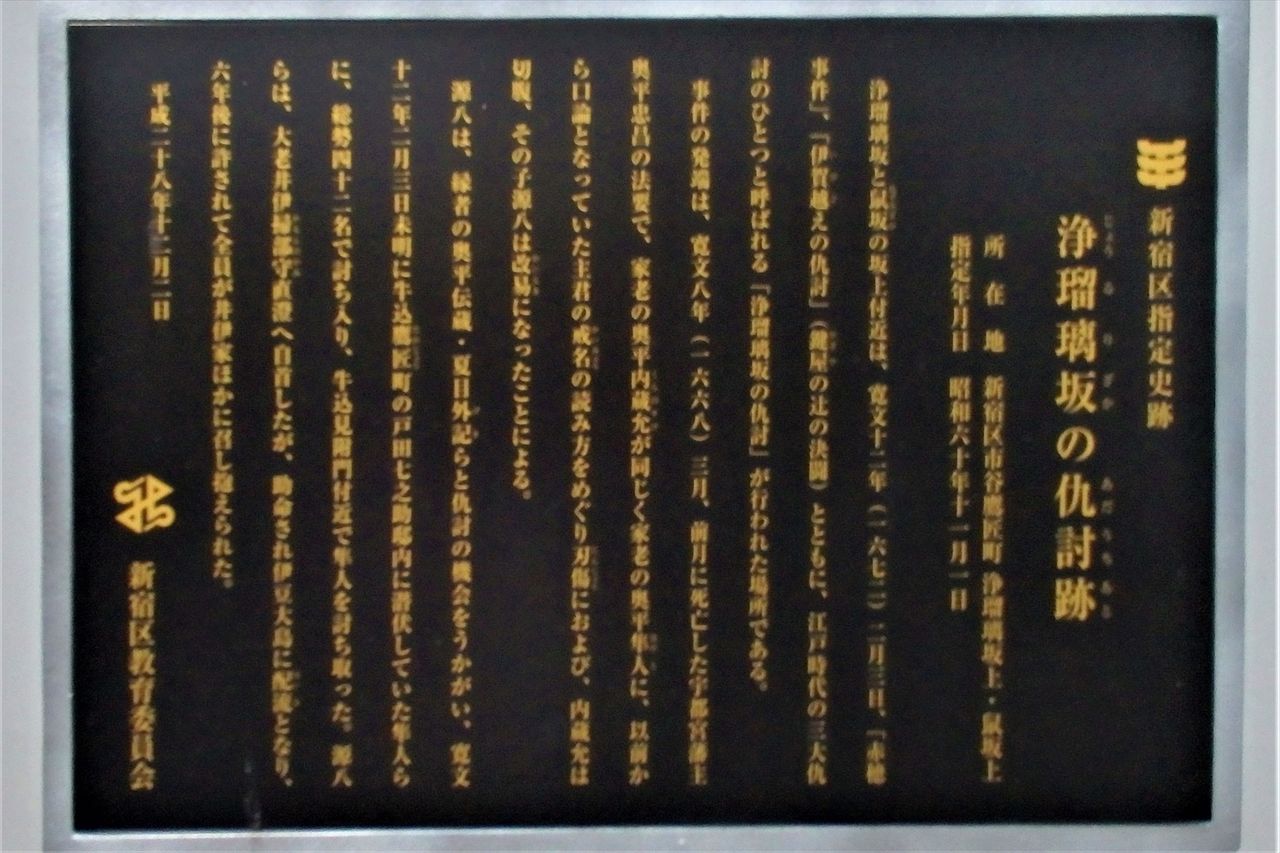 新宿区指定史跡
浄瑠璃坂の仇討跡
所在地 新宿区市谷鷹匠町 浄瑠璃坂上・鼠坂上
指定年月日 昭和六十年十一月一日
浄瑠璃坂と鼠坂の坂上付近は、寛文十二年（一六七二）二月三日、「赤穂
事件」、「伊賀越えの仇討」（鍵屋の辻の決闘）とともに、江戸時代の三大仇
討のひとつと呼ばれる「浄瑠璃坂の仇討」が行われた場所である。
事件の発端は、寛文八年（一六六八）三月、前月に死亡した宇都宮藩主
奥平忠昌の法要で、家老の奥平内蔵允が同じく家老の奥平隼人に、以前か
ら口論となっていた主君の戒名の読み方をめぐり刃傷におよび、内蔵允は
切腹、その子源八は改易になったことによる。
源八は、縁者の奥平伝蔵・夏目外記らと仇討の機会をうかがい、寛文
十二年二月三日未明に牛込鷹匠町の戸田七之助邸内に潜伏していた隼人ら
に、総勢四十二名で討ち入り、牛込見附門付近で隼人を討ち取った。源八
らは、大老井伊掃部守直澄へ自首したが、助命され伊豆大島に配流となり、
六年後に許されて全員が井伊家ほかに召し抱えられた。
平成二十八年十二月二日
新宿区教育委員会